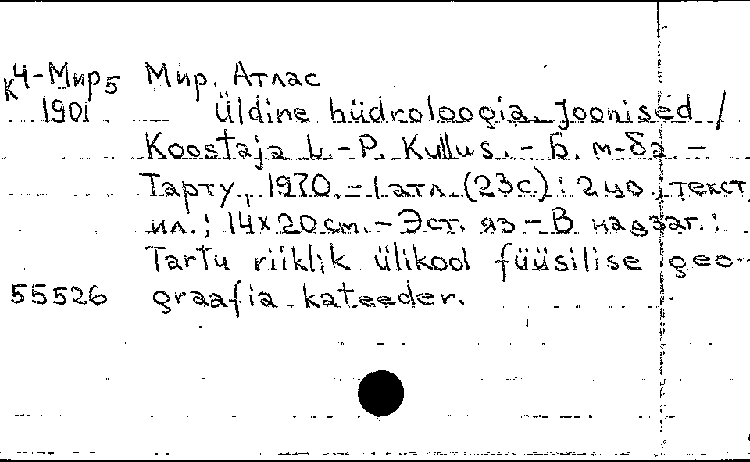 К4-Мир5 Мир. Атлас
1901 Üldine hüdroloogia. Joonised /
Koostaja L.-P. Kullus. - Б. м-ба. -
Тарту, 1970. - 1 атл. (23с.): 2 цв., текст,
ил.; 14x20 cm. - Эст. яз - В надзаг.:
Tartu riiklik ülikool füüsilise geo-
55526 graafia kateeder.